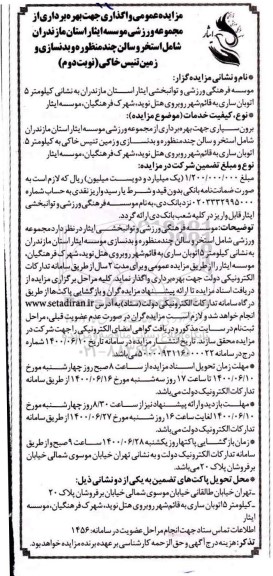 مزایده عمومی واگذاری جهت بهره برداری از
مجموعه ورزشی موسسه ایثار استان مازندران
شامل استخر و سالن چند منظوره و بدنسازی و
زمین تنیس خاکی (نوبت دوم)
* نام و نشانی مزایده گزار:
موسسه فرهنگی ورزشی و توانبخشی ایثار استان مازندران به نشانی کیلومتر ۵
اتوبان ساری به قائم شهر روبروی هتل نوید، شهرک فرهنگیان، موسسه ایثار
* نوع، کیفیت خدمات (موضوع مزایده):
برون سپاری جهت بهره برداری از مجموعه ورزشی موسسه ایثار استان مازندران
شامل استخر و سالن چند منظوره و بدنسازی و زمین تنیس خاکی به کیلومتر ۵
اتوبان ساری به قائم شهر روبروی هتل نوید، شهرک فرهنگیان، موسسه ایثار
نوع و مبلغ تضمین شرکت در مزایده:
مبلغ ۱/۲۰۰/۰۰۰/۰۰۰ (یک میلیارد و دویست میلیون) ریال که لازم است به
صورت ضمانت نامه بانکی بدون قید و شرط یا رسید واریز نقدی به حساب شماره
نزد بانک دی، به نام موسسه فرهنگی ورزشی و توانبخشی
ایثار قابل واریز در کلیه شعب بانک دی ارائه گردد.
توضیحات: موسسه فرهنگی ورزشی و توانبخشی ایثار در نظر دارد مجموعه
ورزشی شامل استخر و سالن چند منظوره و بدنسازی موسسه ایثار استان مازندران
به نشانی کیلومتر ۵ اتوبان ساری به قائم شهر روبروی هتل نوید، شهرک فرهنگیان،
موسسه ایثار را از طریق مزایده عمومی و برای مدت ۲ سال از طریق سامانه تدارکات
الکترونیکی دولت جهت بهره برداری واگذار نماید. کلیه مراحل برگزاری مزایده از
دریافت اسناد مزایده تا ارائه پیشنهاد مزایده گران و بازگشایی پاکت ها از طریق
درگاه سامانه تدارکات الکترونیکی دولت (ستاد) به آدرس www.setadiran.ir
انجام خواهد شد و لازم است مزایده گران در صورت عدم عضویت قبلی، مراحل
ثبت نام در سایت مذکور و دریافت گواهی امضای الکترونیکی را جهت شرکت در
مزایده محقق سازند. تاریخ انتشار مزایده در سامانه تاریخ ۱۴۰۰/۰۶/۱۰ شماره
می باشد.
* مهلت زمان تحویل اسناد مزایده از ساعت ۸ صبح روز چهارشنبه مورخ
۱۴۰۰/۰۶/۱۰ تا ساعت ۱۷ روز سه شنبه مورخ ۱۴۰۰/۰۶/۱۶ از طریق سامانه
تدارکات دولت می باشد.
* مهلت بازدید و ارائه پیشنهاد نیز از ساعت ۸/۳۰ روز چهارشنبه مورخ
۱۴۰۰/۰۶/۱۰ لغایت ساعت ۱۶ روز شنبه مورخ ۱۴۰۰/۰۶/۲۷ از طریق سامانه
تدارکات دولت می باشد.
* زمان بازگشایی پاکت ها روز یکشنبه ۱۴۰۰/۰۶/۲۸ ساعت ۹ صبح و از طریق
سامانه تدارکات الکترونیک دولت و به نشانی تهران خیابان موسوی شمالی خیابان
برفروشان پلاک ۲۰ می باشد.
* محل تحویل پاکت های تضمین به یکی از دو نشانی ذیل:
_ تهران خیابان طالقانی خیابان موسوی شمالی خیابان برفروشان پلاک ۲۰
_ کیلومتر ۵ اتوبان ساری به قائم شهر روبروی هتل نوید، شهرک فرهنگیان، موسسه
ایثار
اطلاعات تماس ستاد جهت انجام مراحل عضویت در سامانه: ۱۴۵۶
تذکر: هزینه درج آگهی و حق الزحمه کارشناسی بر عهده برنده مزایده خواهد بود.